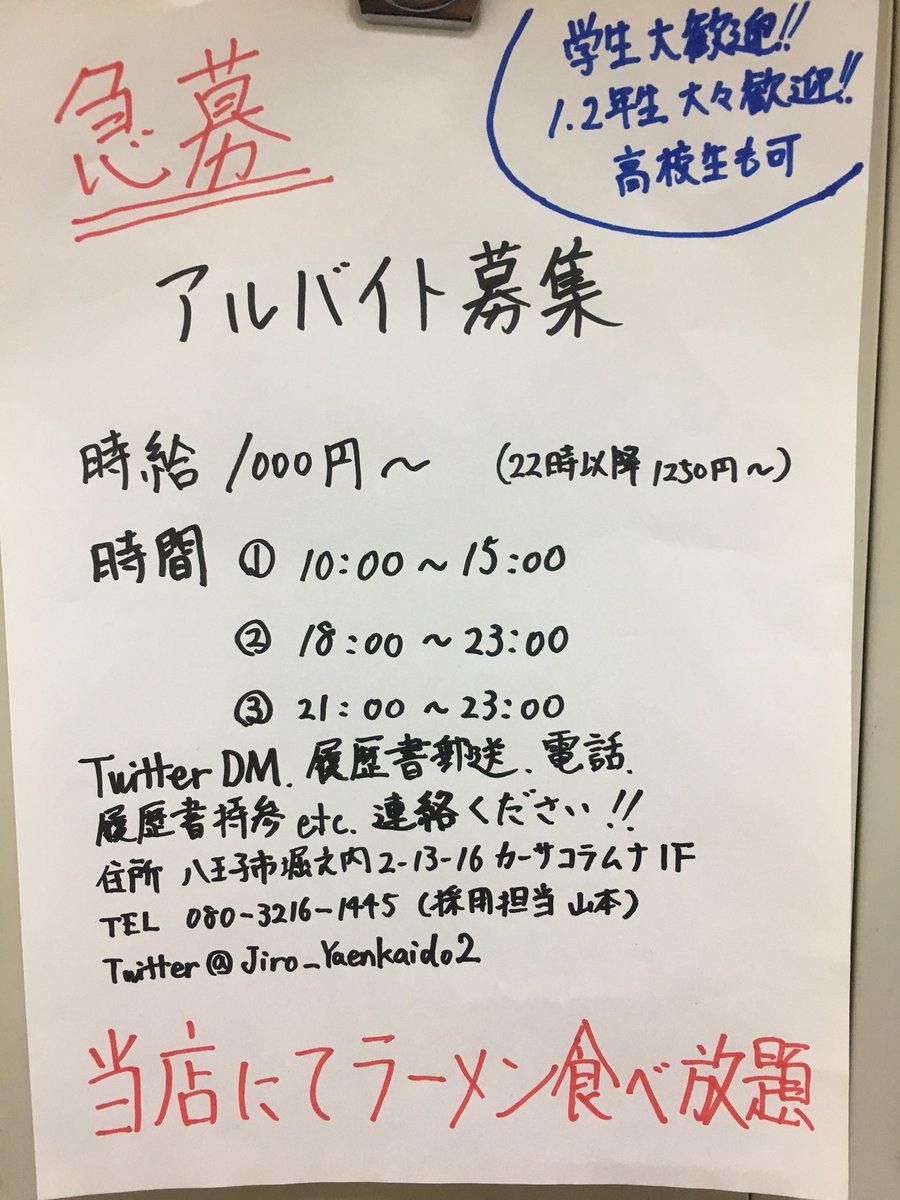 急募
学生大歓迎!!
1.2年生 大々歓迎!!
高校生も可
アルバイト募集
時給 1000円～ (22時以降 1250円～)
時間 ① 10:00～15:00
② 18:00～23:00
③ 21:00～23:00
Twitter DM、履歴書郵送、電話、
履歴書持参 etc. 連絡ください!!
住所 八王子市堀之内2-13-16 カーサコラムナ1F
TEL 080-3216-1445 (採用担当 山本)
Twitter @Jiro_Yaenkaido2
当店にてラーメン食べ放題